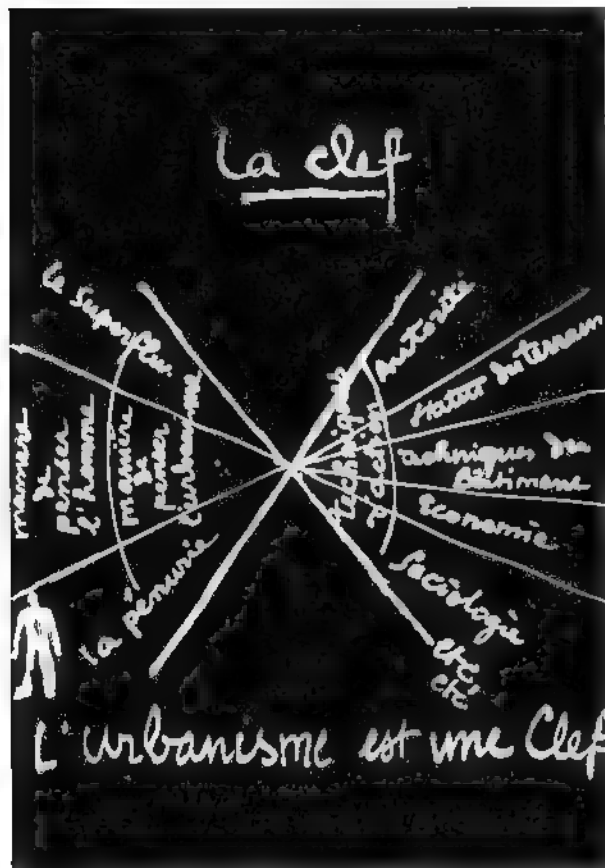 La clef
Le superflu
manière
de
penser
l'homme
manière
de
penser
l'urbanisme
la pénurie
Techniques
d'action
autorité
statut du terrain
techniques du
bâtiment
économie
Sociologie
etc.
etc.
L'urbanisme est une Clef